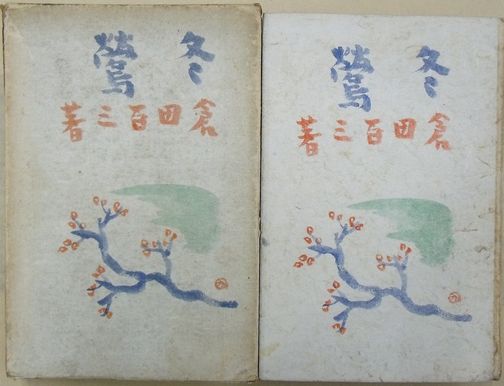 冬鶯
倉田百三著
冬鶯
倉田百三著